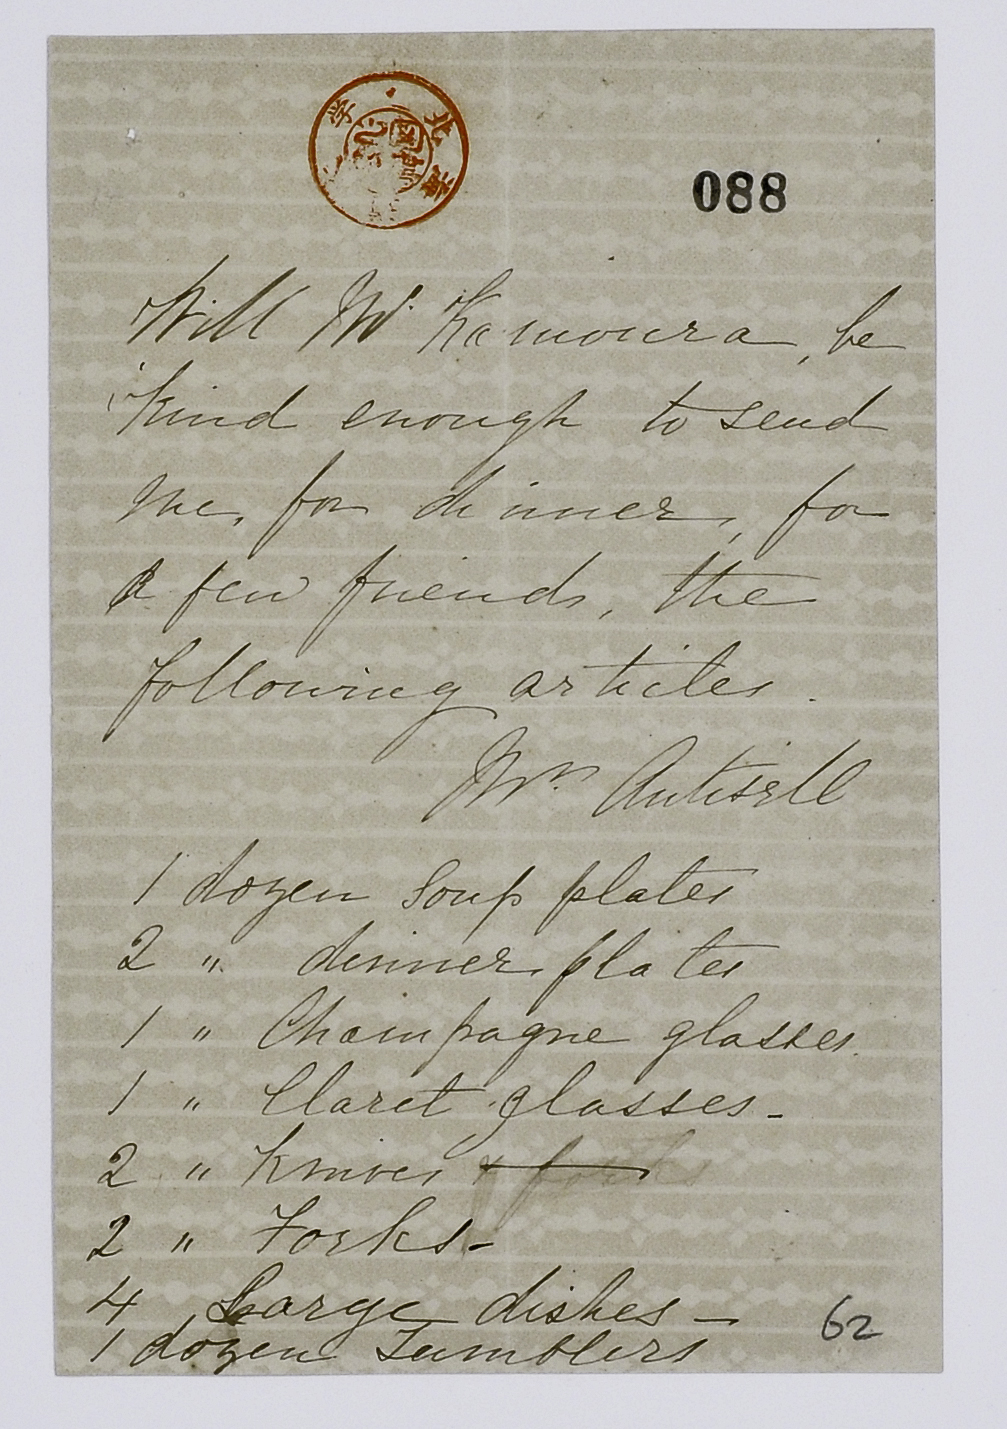 088
Will Mr Kamoura, be
kind enough to send
me, for dinner, for
a few friends, the
following articles.
Antisell
1 dozen soup plates
2 " dinner plates
1 " Champagne glasses.
1 " Claret glasses -
2 " Knives & forks
2 " Forks -
4 Large dishes -
1 dozen Tumblers
62